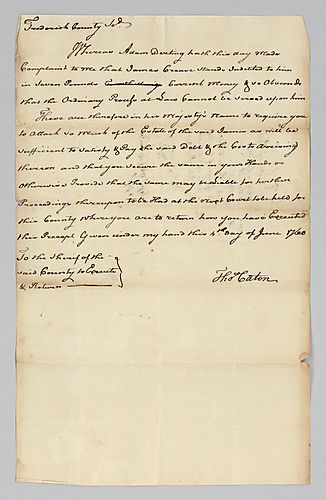 Frederick County Sct.
Whereas Adam Deeting hath this day Made
Complaint to Me that James Greave Stands Indebted to him
in Seven Pounds Current Money & so Absconds
that the Ordinary Process at Law Cannot be Served upon him
These are therefore in his Majesty's Name to require you
to Attach so Much of the Estate of the said James as will be
Sufficient to Satisfy & Pay the said Debt & the Costs Arising
thereon and that you Secure the same in your Hands or
Otherwise Provide that the same may be liable for further
Proceedings thereupon to be Had at the next Court to be held for
this County Where you are to return how you have Executed
this Precept Given under my hand this 4th Day of June 1760
To the Sherif of the
said County to Execute
& Return
Thos. Caton